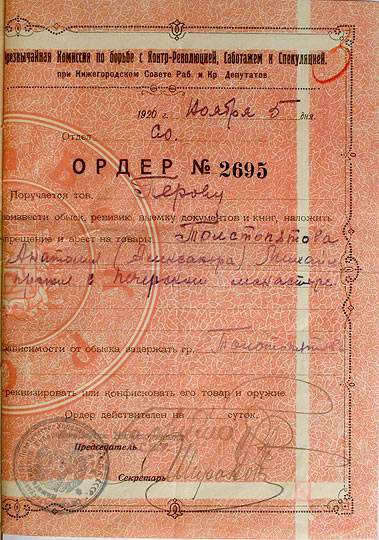 резвычайная Комиссия по борьбе с Контр-Революцией, Саботажем и Спекуляцией,
при Нижегородском Совете Раб. и Кр. Депутатов
1920 г. Ноября 5 дня.
Отдел со.
ОРДЕР № 2695
Поручается тов. Перову
роизвести обыск, ревизию, выемку документов и книг, наложить
апрещение и арест на товары Толстопятова
Анатолия (Александра) Михайл
в Печерском монастыре
ависимости от обыска задержать гр. Толстопятова
реквизировать или конфисковать его товар и оружие.
Ордер действителен на суток.
Председатель
Секретарь